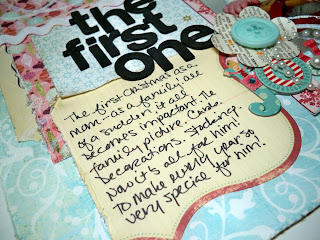 the
first
one
The first Christmas as a
mom, as a family, all
of a sudden it all
becomes important. The
family picture. Cards.
Decorations. Stocking.
Now it's all for him!
To make every year so
very special for him.